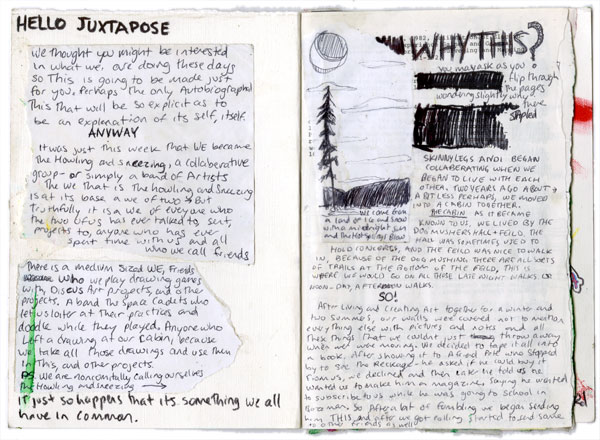 HELLO JUXTAPOSE
We thought you might be interested
in what we are doing these days
so This is going to be made just
for you. Perhaps the only Autobiographed
This that will be so explicit as to
be an explanation of its self, itself.
ANYWAY
It was just this week that WE became
The Howling and sneezing, a collaberative
group - or simply a band of Artists
The We that is The howling and sneezing
is at its base a we of two → But
truthfully it is a we of everyone who
the two of us has ever talked to, sent
projects to, anyone who has ever
spent time with us and all
who we call friends
There is a medium sized WE, friends
who we play drawing games
with, Discuss Art projects, and other
projects. A band The Space Cadets who
lets us loiter at Their practices and
doodle while they played. Anyone who
Left a drawing at our Cabin, because
we take all those drawings and use them
in This, and other projects.
PS. We are noncommittally calling ourselves
The Howling and sneezing →
it just so happens that its something we all
have in common.
WHY THIS?
you may ask as you
flip through
the pages
wondering slightly why
there
stapled
SKINNYLEGS AND I BEGAN
COLLABERATING WHEN WE
BEGAN TO LIVE WITH EACH
OTHER. TWO YEARS AGO ABOUT →
ARTLESS PERHAPS, WE MOVED
INTO A CABIN TOGETHER.
BECABIN AS IT BECAME
KNOWN TO US, WE LIVED BY THE
DOG MUSHERS HALL + FEILD. THE
HALL WAS SOMETIMES USED TO
HOLD CONCERTS, AND THE FEILD WAS NICE TO WALK
IN, BECAUSE OF THE DOG MUSHING THERE ARE ALL SORTS
OF TRAILS AT THE BOTTOM OF THE FEILD, THIS IS
WERE WE WOULD GO ON ALL OF THESE LATE NIGHT WALKS. OR
NOON-DAY, AFTERNOON WALKS.
We come from
a land of
with a midnight sun
and the Hot springs flow
SO!
After Living and Creating Art together for a winter and
two summers, our walls were covered not to mention
everything else with pictures and notes and all
these things That we couldnt just throw away
when we were moving. We decided to tape it all into
a book. After showing it to Pete who stopped
by to see The Message - he asked if he could buy it
from us, we declined and then later he told us he
wanted us to make him a magazine, saying he wanted
to subscribe to us while he was going to school in
Bozeman. So After a lot of fumbling we began sending
him THIS, and after we got rolling started to send some
to other friends as well